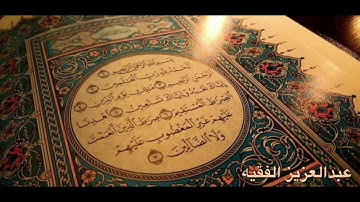 بسم الله الرحمن الرحيم
الحمد لله رب العالمين
الرحمن الرحيم ملك يوم الدين
إياك نعبد وإياك نستعين اهدنا
الصراط المستقيم صراط الذين أنعمت
عليهم غير المغضوب عليهم
ولا الضالين
عبدالعزيز الفقيه